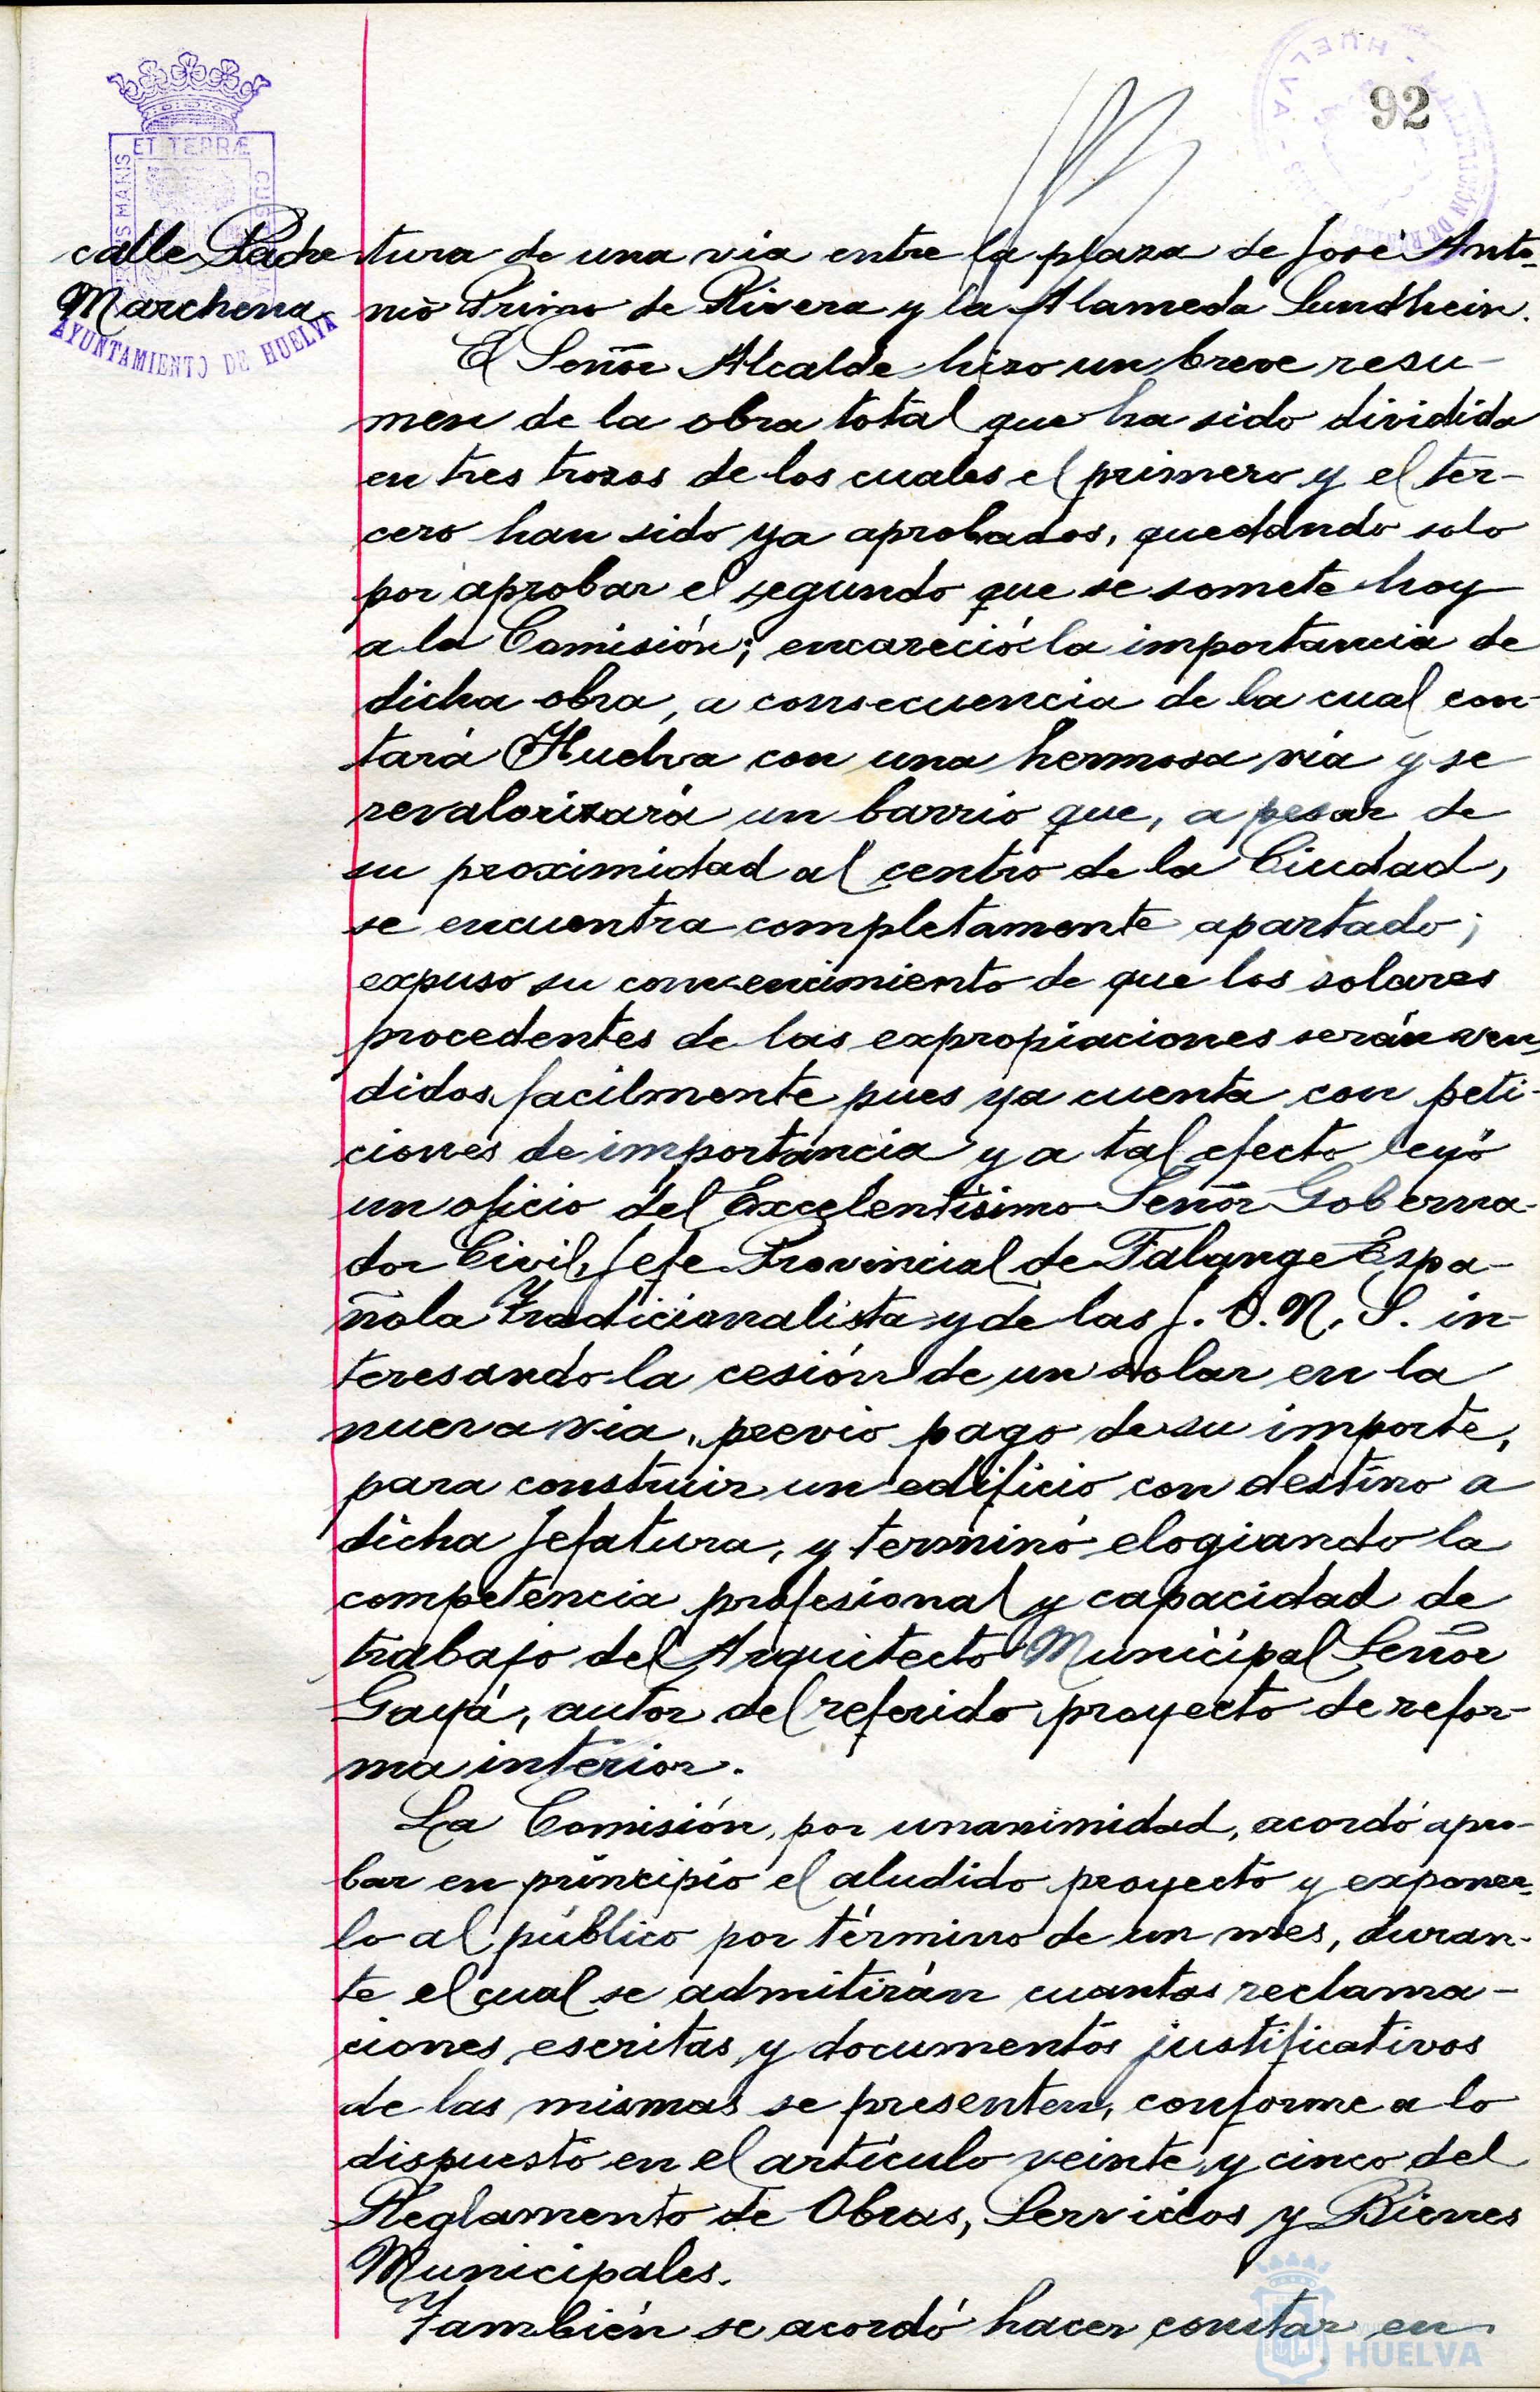 92
ET TERRÆ
MARIS
AYUNTAMIENTO DE HUELVA
HUELVA
calle Padre
Marchena.
tura de una via entre la plaza de José Anto-
nio Primo de Rivera y la Alameda Sundhein.
El Señor Alcalde hizo un breve resu-
men de la obra total que ha sido dividida
en tres trozos de los cuales el primero y el ter-
cero han sido ya aprobados, quedando solo
por aprobar el segundo que se somete hoy
a la Comisión; encareció la importancia de
dicha obra, a consecuencia de la cual con-
tará Huelva con una hermosa via y se
revalorizará un barrio que, a pesar de
su proximidad al centro de la Ciudad,
se encuentra completamente apartado;
expuso su convencimiento de que los solares
procedentes de las expropiaciones serán ven-
didos facilmente pues ya cuenta con peti-
ciones de importancia y a tal efecto leyó
un oficio del Excelentísimo Señor Goberna-
dor Civil, Jefe Provincial de Falange Espa-
ñola Tradicionalista y de las J. O. N. S. in-
teresando la cesión de un solar en la
nueva via, previo pago de su importe,
para construir un edificio con destino a
dicha Jefatura, y terminó elogiando la
competencia profesional y capacidad de
trabajo del Arquitecto Municipal Señor
Gayá, autor del referido proyecto de refor-
ma interior.
La Comisión, por unanimidad, acordó apro-
bar en principio el aludido proyecto y exponer-
lo al público por término de un mes, duran-
te el cual se admitirán cuantas reclama-
ciones escritas y documentos justificativos
de las mismas se presenten, conforme a lo
dispuesto en el artículo veinte y cinco del
Reglamento de Obras, Servicios y Bienes
Municipales.
También se acordó hacer constar en
HUELVA